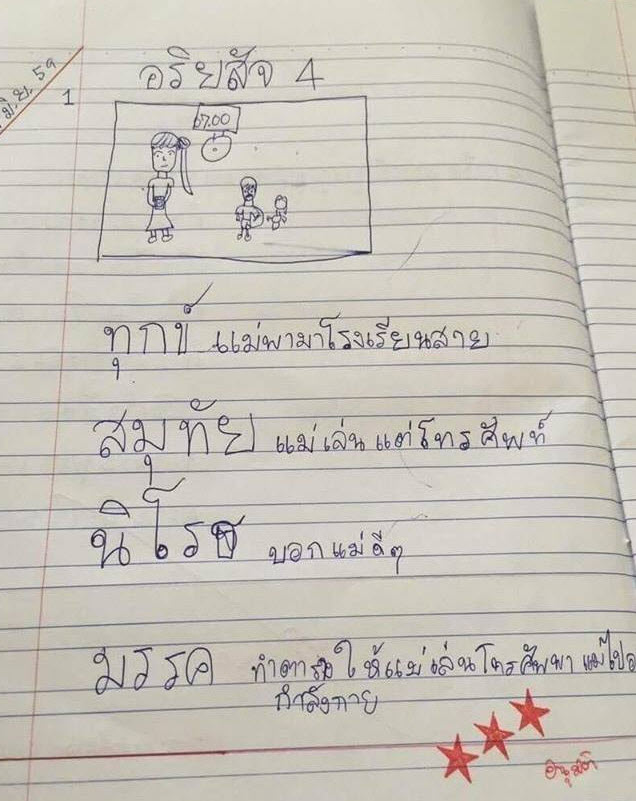 มิ.ย. 59
1
อริยสัจ 4
07.00
ทุกข์ แม่พามาโรงเรียนสาย
สมุทัย แม่เล่นแต่โทรศัพท์
นิโรธ บอกแม่ดีๆ
มรรค ให้แม่เล่นโทรศัพพา แม่ไปอ
กำลังกาย